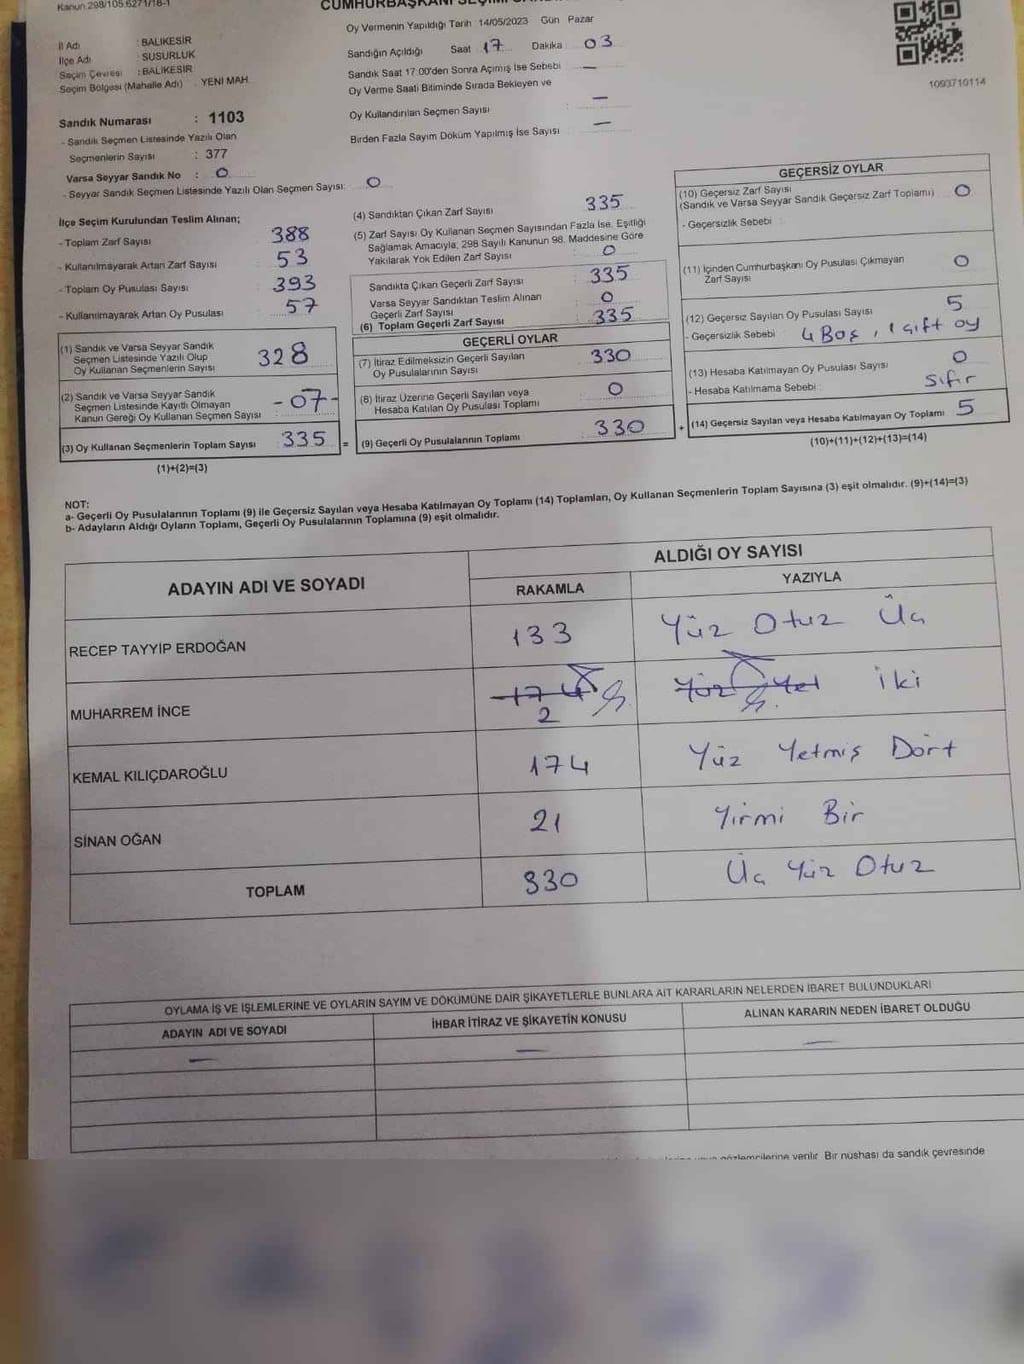 Kanun 298/105.6271/18-1
İl Adı : BALIKESİR
İlçe Adı : SUSURLUK
Seçim Çevresi : BALIKESİR
Seçim Bölgesi (Mahalle Adı) : YENİ MAH.
Oy Vermenin Yapıldığı Tarih 14/05/2023 Gün Pazar
Sandığın Açıldığı Saat 17 Dakika 03
Sandık Saat 17:00'den Sonra Açımış İse Sebebi —
Oy Verme Saati Bitiminde Sırada Bekleyen ve
Oy Kullandırılan Seçmen Sayısı : —
Birden Fazla Sayım Döküm Yapılmış İse Sayısı : —
1093710114
Sandık Numarası : 1103
- Sandık Seçmen Listesinde Yazılı Olan
Seçmenlerin Sayısı : 377
Varsa Seyyar Sandık No : 0
- Seyyar Sandık Seçmen Listesinde Yazılı Olan Seçmen Sayısı: 0
İlçe Seçim Kurulundan Teslim Alınan;
- Toplam Zarf Sayısı 388
- Kullanılmayarak Artan Zarf Sayısı 53
- Toplam Oy Pusulası Sayısı 393
- Kullanılmayarak Artan Oy Pusulası 57
(1) Sandık ve Varsa Seyyar Sandık
Seçmen Listesinde Yazılı Olup
Oy Kullanan Seçmenlerin Sayısı 328
(2) Sandık ve Varsa Seyyar Sandık
Seçmen Listesinde Kayıtlı Olmayan
Kanun Gereği Oy Kullanan Seçmen Sayısı -07-
(3) Oy Kullanan Seçmenlerin Toplam Sayısı 335 =
(1)+(2)=(3)
(4) Sandıktan Çıkan Zarf Sayısı 335
(5) Zarf Sayısı Oy Kullanan Seçmen Sayısından Fazla İse, Eşitliği
Sağlamak Amacıyla; 298 Sayılı Kanunun 98. Maddesine Göre
Yakılarak Yok Edilen Zarf Sayısı : 0
Sandıkta Çıkan Geçerli Zarf Sayısı : 335
Varsa Seyyar Sandıktan Teslim Alınan
Geçerli Zarf Sayısı : 0
(6) Toplam Geçerli Zarf Sayısı : 335
GEÇERLİ OYLAR
(7) İtiraz Edilmeksizin Geçerli Sayılan
Oy Pusulalarının Sayısı 330
(8) İtiraz Üzerine Geçerli Sayılan veya
Hesaba Katılan Oy Pusulası Toplamı 0
(9) Geçerli Oy Pusulalarının Toplamı 330 +
GEÇERSİZ OYLAR
(10) Geçersiz Zarf Sayısı
(Sandık ve Varsa Seyyar Sandık Geçersiz Zarf Toplamı) 0
- Geçersizlik Sebebi :
(11) İçinden Cumhurbaşkanı Oy Pusulası Çıkmayan
Zarf Sayısı 0
(12) Geçersiz Sayılan Oy Pusulası Sayısı 5
- Geçersizlik Sebebi : 4 Boş, 1 çift oy
(13) Hesaba Katılmayan Oy Pusulası Sayısı 0
- Hesaba Katılmama Sebebi : Sıfır
(14) Geçersiz Sayılan veya Hesaba Katılmayan Oy Toplamı 5
(10)+(11)+(12)+(13)=(14)
NOT:
a- Geçerli Oy Pusulalarının Toplamı (9) ile Geçersiz Sayılan veya Hesaba Katılmayan Oy Toplamı (14) Toplamları, Oy Kullanan Seçmenlerin Toplam Sayısına (3) eşit olmalıdır. (9)+(14)=(3)
b- Adayların Aldığı Oyların Toplamı, Geçerli Oy Pusulalarının Toplamına (9) eşit olmalıdır.
ADAYIN ADI VE SOYADI
ALDIĞI OY SAYISI
RAKAMLA YAZIYLA
RECEP TAYYİP ERDOĞAN 133 Yüz Otuz Üç
MUHARREM İNCE 174 2 Yüz Yet İki
KEMAL KILIÇDAROĞLU 174 Yüz Yetmiş Dört
SİNAN OĞAN 21 Yirmi Bir
TOPLAM 330 Üç Yüz Otuz
OYLAMA İŞ VE İŞLEMLERİNE VE OYLARIN SAYIM VE DÖKÜMÜNE DAİR ŞİKAYETLERLE BUNLARA AİT KARARLARIN NELERDEN İBARET BULUNDUKLARI
ADAYIN ADI VE SOYADI İHBAR İTİRAZ VE ŞİKAYETİN KONUSU ALINAN KARARIN NEDEN İBARET OLDUĞU
— — —
gözlemcilerine verilir. Bir nüshası da sandık çevresinde